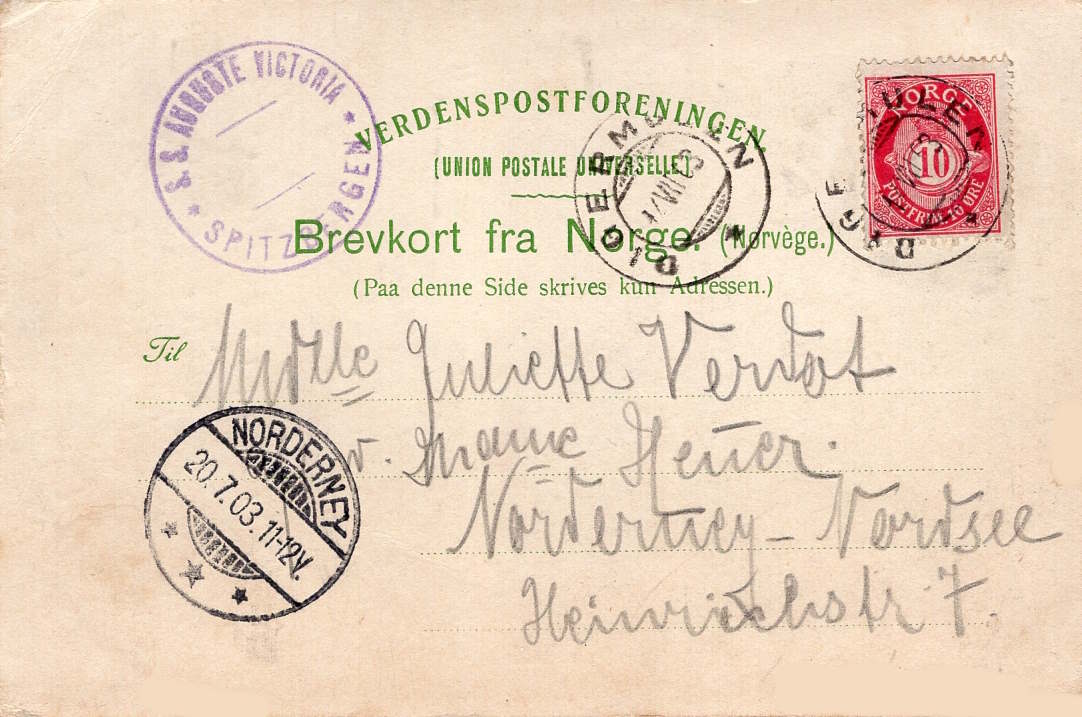 S. S. AUGUSTE VICTORIA
* SPITZBERGEN *
VERDENSPOSTFORENINGEN.
(UNION POSTALE UNIVERSELLE)
Brevkort fra Norge. (Norvège.)
(Paa denne Side skrives kun Adressen.)
DIGERMULEN *
VII 03
NORGE
10
POSTFRIM. 10 ØRE
DIGERMULEN *
Til Mdlle Juliette Verdot
Heuer.
Norderney - Nordsee
Heinrichstr 7.
NORDERNEY
20.7.03.11-12V.
* * *